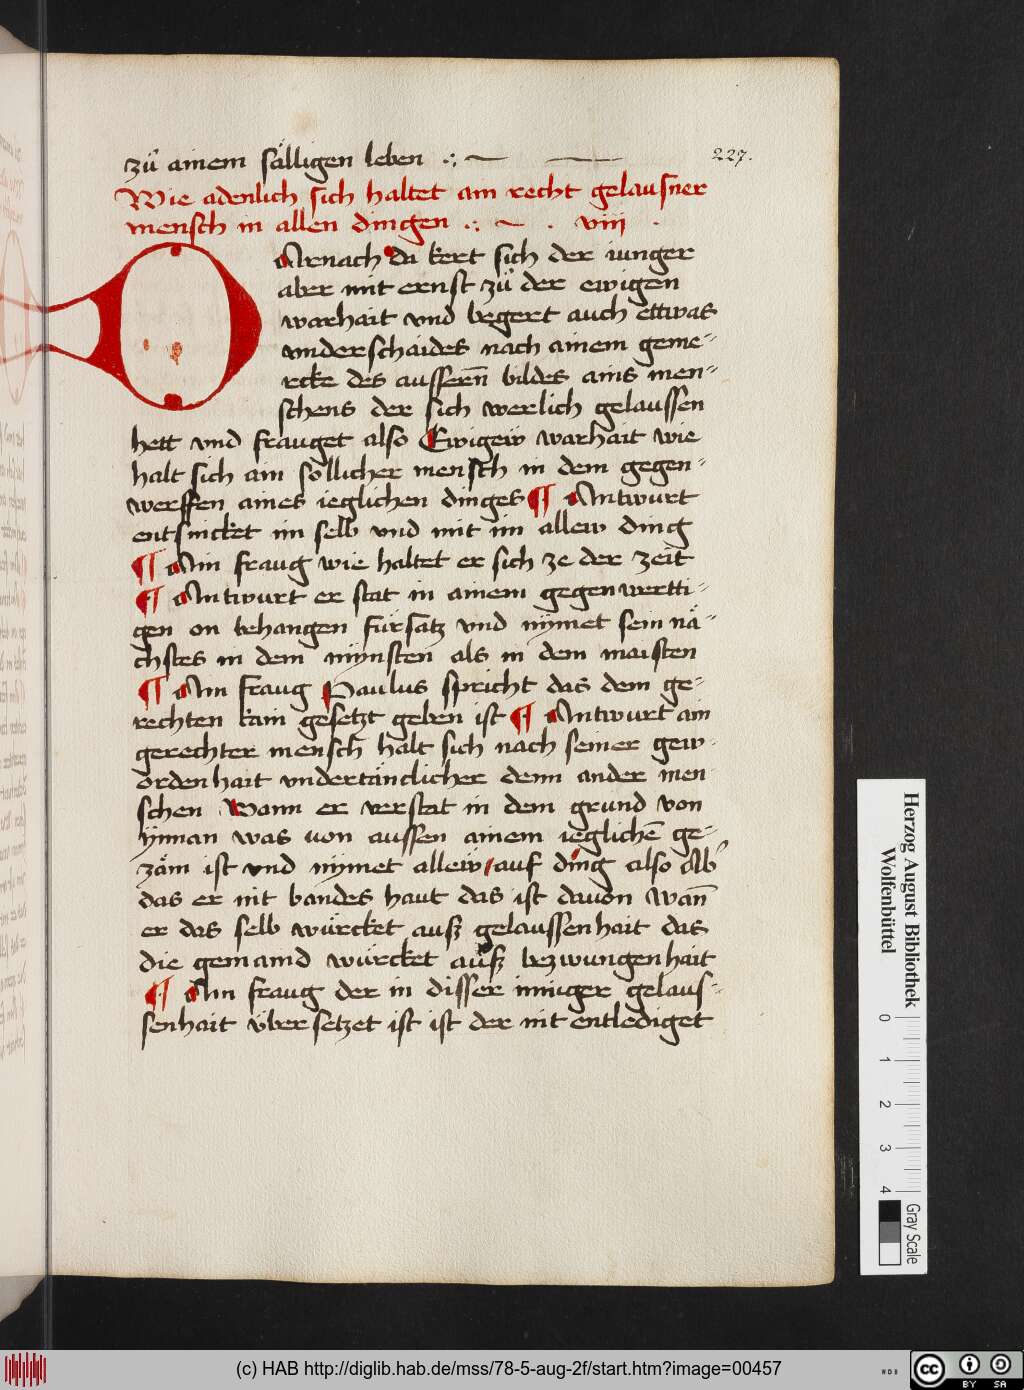 zů ainem sälligen leben
227.
Wie adenlich sich haltet ain recht gelausner
mensch in allen dingen viii
DArnach da kert sich der iunger
aber mit ernst zů der ewigen
warhait vnd begert auch ettwas
vnderschaides nach ainem geme-
rcke des aussern̄ bildes ains men-
schens der sich werlich gelaussen
hett vnd frauget also Ewigew warhait wie
halt sich ain söllicher mensch in dem gegen-
werffen aines ieglichen dinges ¶ Antwurt
entsincket im selb vnd mit im allew ding
¶ Ain fraug wie haltet er sich ze der zeit
¶ Antwurt er stat in ainem gegenwertti-
gen on behangen fürsatz vnd nÿmet sein nä-
chstes in dem mÿnsten als in dem maisten
¶ Ain fraug Paulus spricht das dem ge-
rechten kain gesetzt geben ist ¶ Antwurt ain
gerechter mensch halt sich nach seiner gew-
ordenhait vndertänclicher denn ander men
schen Wann er verstat in dem grund von
ÿnnan was von aussen ainem ieglichē ge-
zäm ist vnd nÿmet allew auf ding also Ab
das er nit bandes haut das ist dauon wan̄
er das selb würcket ausz gelaussenhait das
die gemaind würcket ausz bezwungenhait
¶ Ain fraug der in disser inniger gelaus-
senhait übersetzet ist ist der nit entlediget
Herzog August Bibliothek
Wolfenbüttel
0 1 2 3 4
Gray Scale
(c) HAB http://diglib.hab.de/mss/78-5-aug-2f/start.htm?image=00457
WDB
cc BY SA